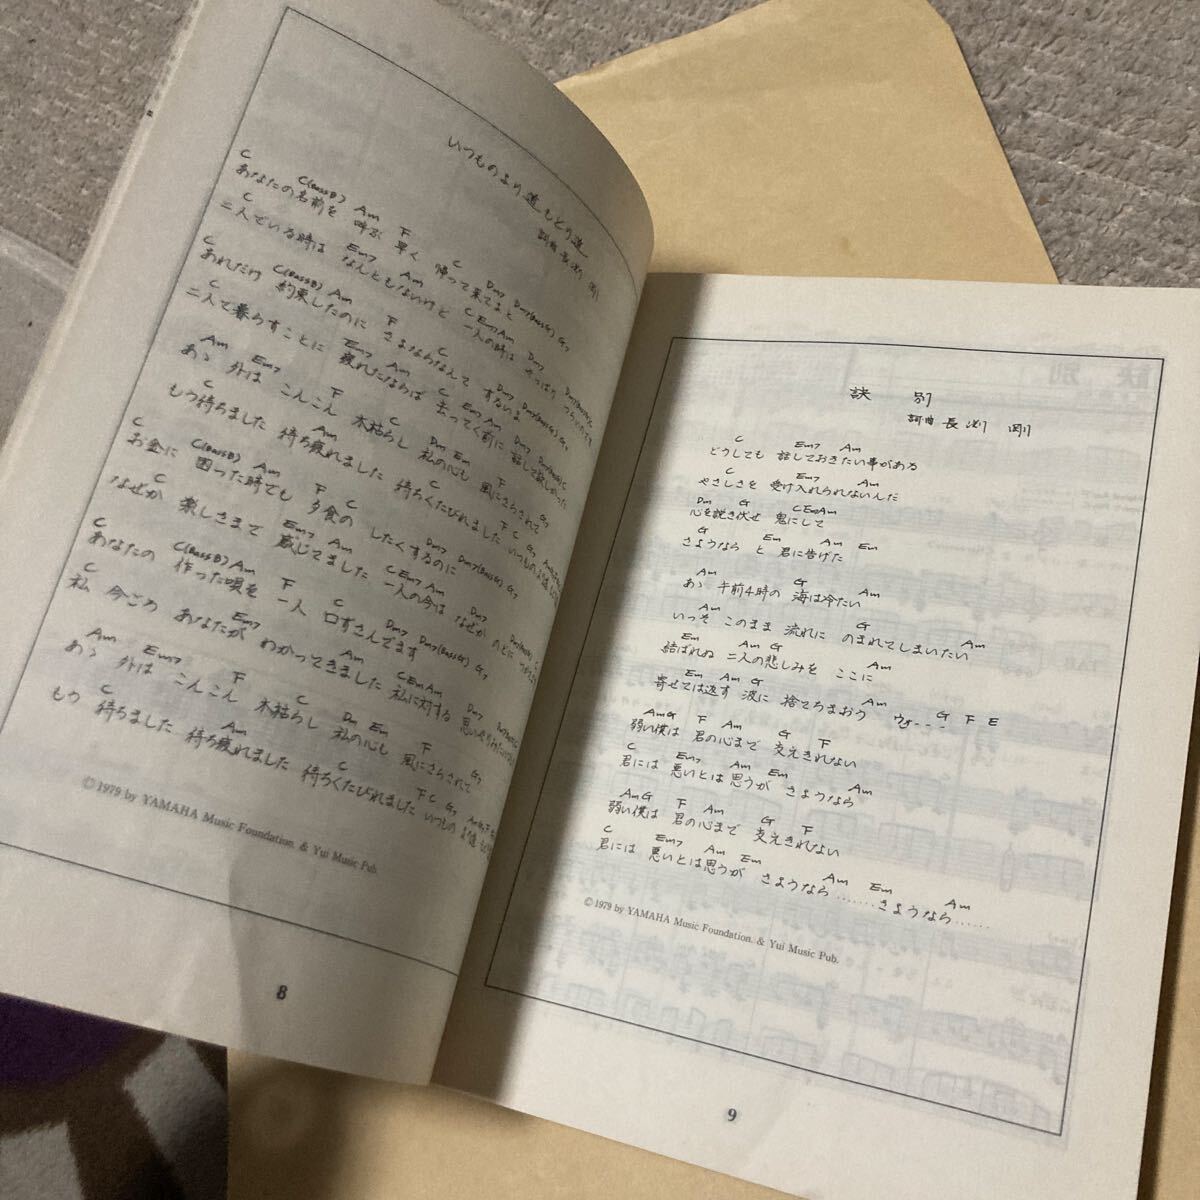 いつものより道もどり道
詞曲 長渕 剛
C C(BassB) Am F C Dm7 Dm7(BassG) G7
あなたの名前を 呼ぶ 早く 帰って来てよと
C Em7 Am C Em Am Dm7
二人でいる時は なんともないけど 一人の時は やっぱり つらいんです
C C(BassB) Am F C Dm7 Dm7(BassG) G7
あれだけ 約束したのに さよならなんて するないよ
C Em7 Am C Em Am Dm7 Dm7(BassG) C
二人で暮らすことに 疲れたならば 去ってく前に 話して欲しかった
Am Em7 F C Dm Em F G7
あゝ 外は こんこん 木枯らし 私の心も 風にさらされて
C Am C F C G7
もう待ちました 待ち疲れました 待ちくたびれました いつもの
C C(BassB) Am F C Dm7 Dm7(BassG) G7
お金に 困った時でも 夕食の したくするのに
C Em7 Am C Em Am Dm7
なぜか 楽しさまで 感じてました 一人の今は なぜか のどに
C C(BassB) Am F C Dm7 Dm7(BassG) G7
あなたの 作った唄を 一人 口ずさんでます
C Em7 Am C Em Am Dm7
私 今ごろ あなたが わかってきました 私に対する 思いやり
Am Em7 F C Dm Em F G7
あゝ 外は こんこん 木枯らし 私の心も 風にさらされて
C Am C F C G7
もう 待ちました 待ち疲れました 待ちくたびれました いつもの
©1979 by YAMAHA Music Foundation. & Yui Music Pub.
8
訣別
訣 別
詞曲 長 渕 剛
C Em7 Am
どうしても 話しておきたい事がある
C Em7 Am
やさしさを 受け入れられないんだ
Dm G C Em Am
心を説き伏せ 鬼にして
G Em Am Em
さようなら と 君に告げた
Am G Am
あゝ 午前4時の 海は冷たい
Am G Am
いっそ このまま 流れに のまれてしまいたい
Em Am G Am
結ばれぬ 二人の悲しみを ここに
Em Am G Am G F E
寄せては返す 波に 捨てちまおう ウォ---
Am G F Am G F
弱い僕は 君の心まで 支えきれない
C Em7 Am Em Am
君には 悪いとは思うが さようなら
Am G F Am G F
弱い僕は 君の心まで 支えきれない
C Em7 Am Em Am Em Am
君には 悪いとは思うが さようなら……さようなら……
©1979 by YAMAHA Music Foundation. & Yui Music Pub.
9